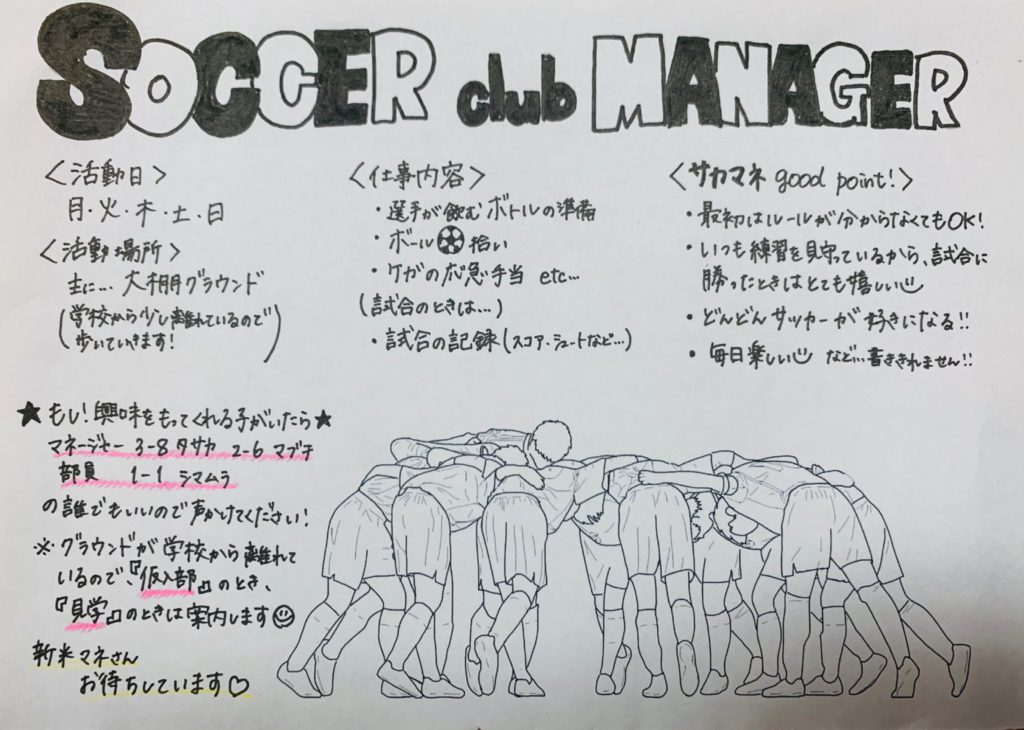 SOCCER club MANAGER
〈活動日〉
月・火・木・土・日
〈活動場所〉
主に… 大棚グラウンド
(学校から少し離れているので
歩いていきます!)
〈仕事内容〉
・選手が飲むボトルの準備
・ボール拾い
・ケガの応急手当 etc…
(試合のときは…)
・試合の記録(スコア・シュートなど…)
〈サカマネ good point!〉
・最初はルールが分からなくてもOK!
・いつも練習を見守っているから、試合に
勝ったときはとても嬉しい
・どんどんサッカーが好きになる!!
・毎日楽しい など…書ききれません!!
★もし!興味をもってくれる子がいたら★
マネージャー 3-8 タサカ 2-6 マブチ
部員 1-1 シマムラ
の誰でもいいので声かけてください!
※グラウンドが学校から離れて
いるので、『仮入部』のとき、
『見学』のときは案内します☺
新米マネさん
お待ちしています♡